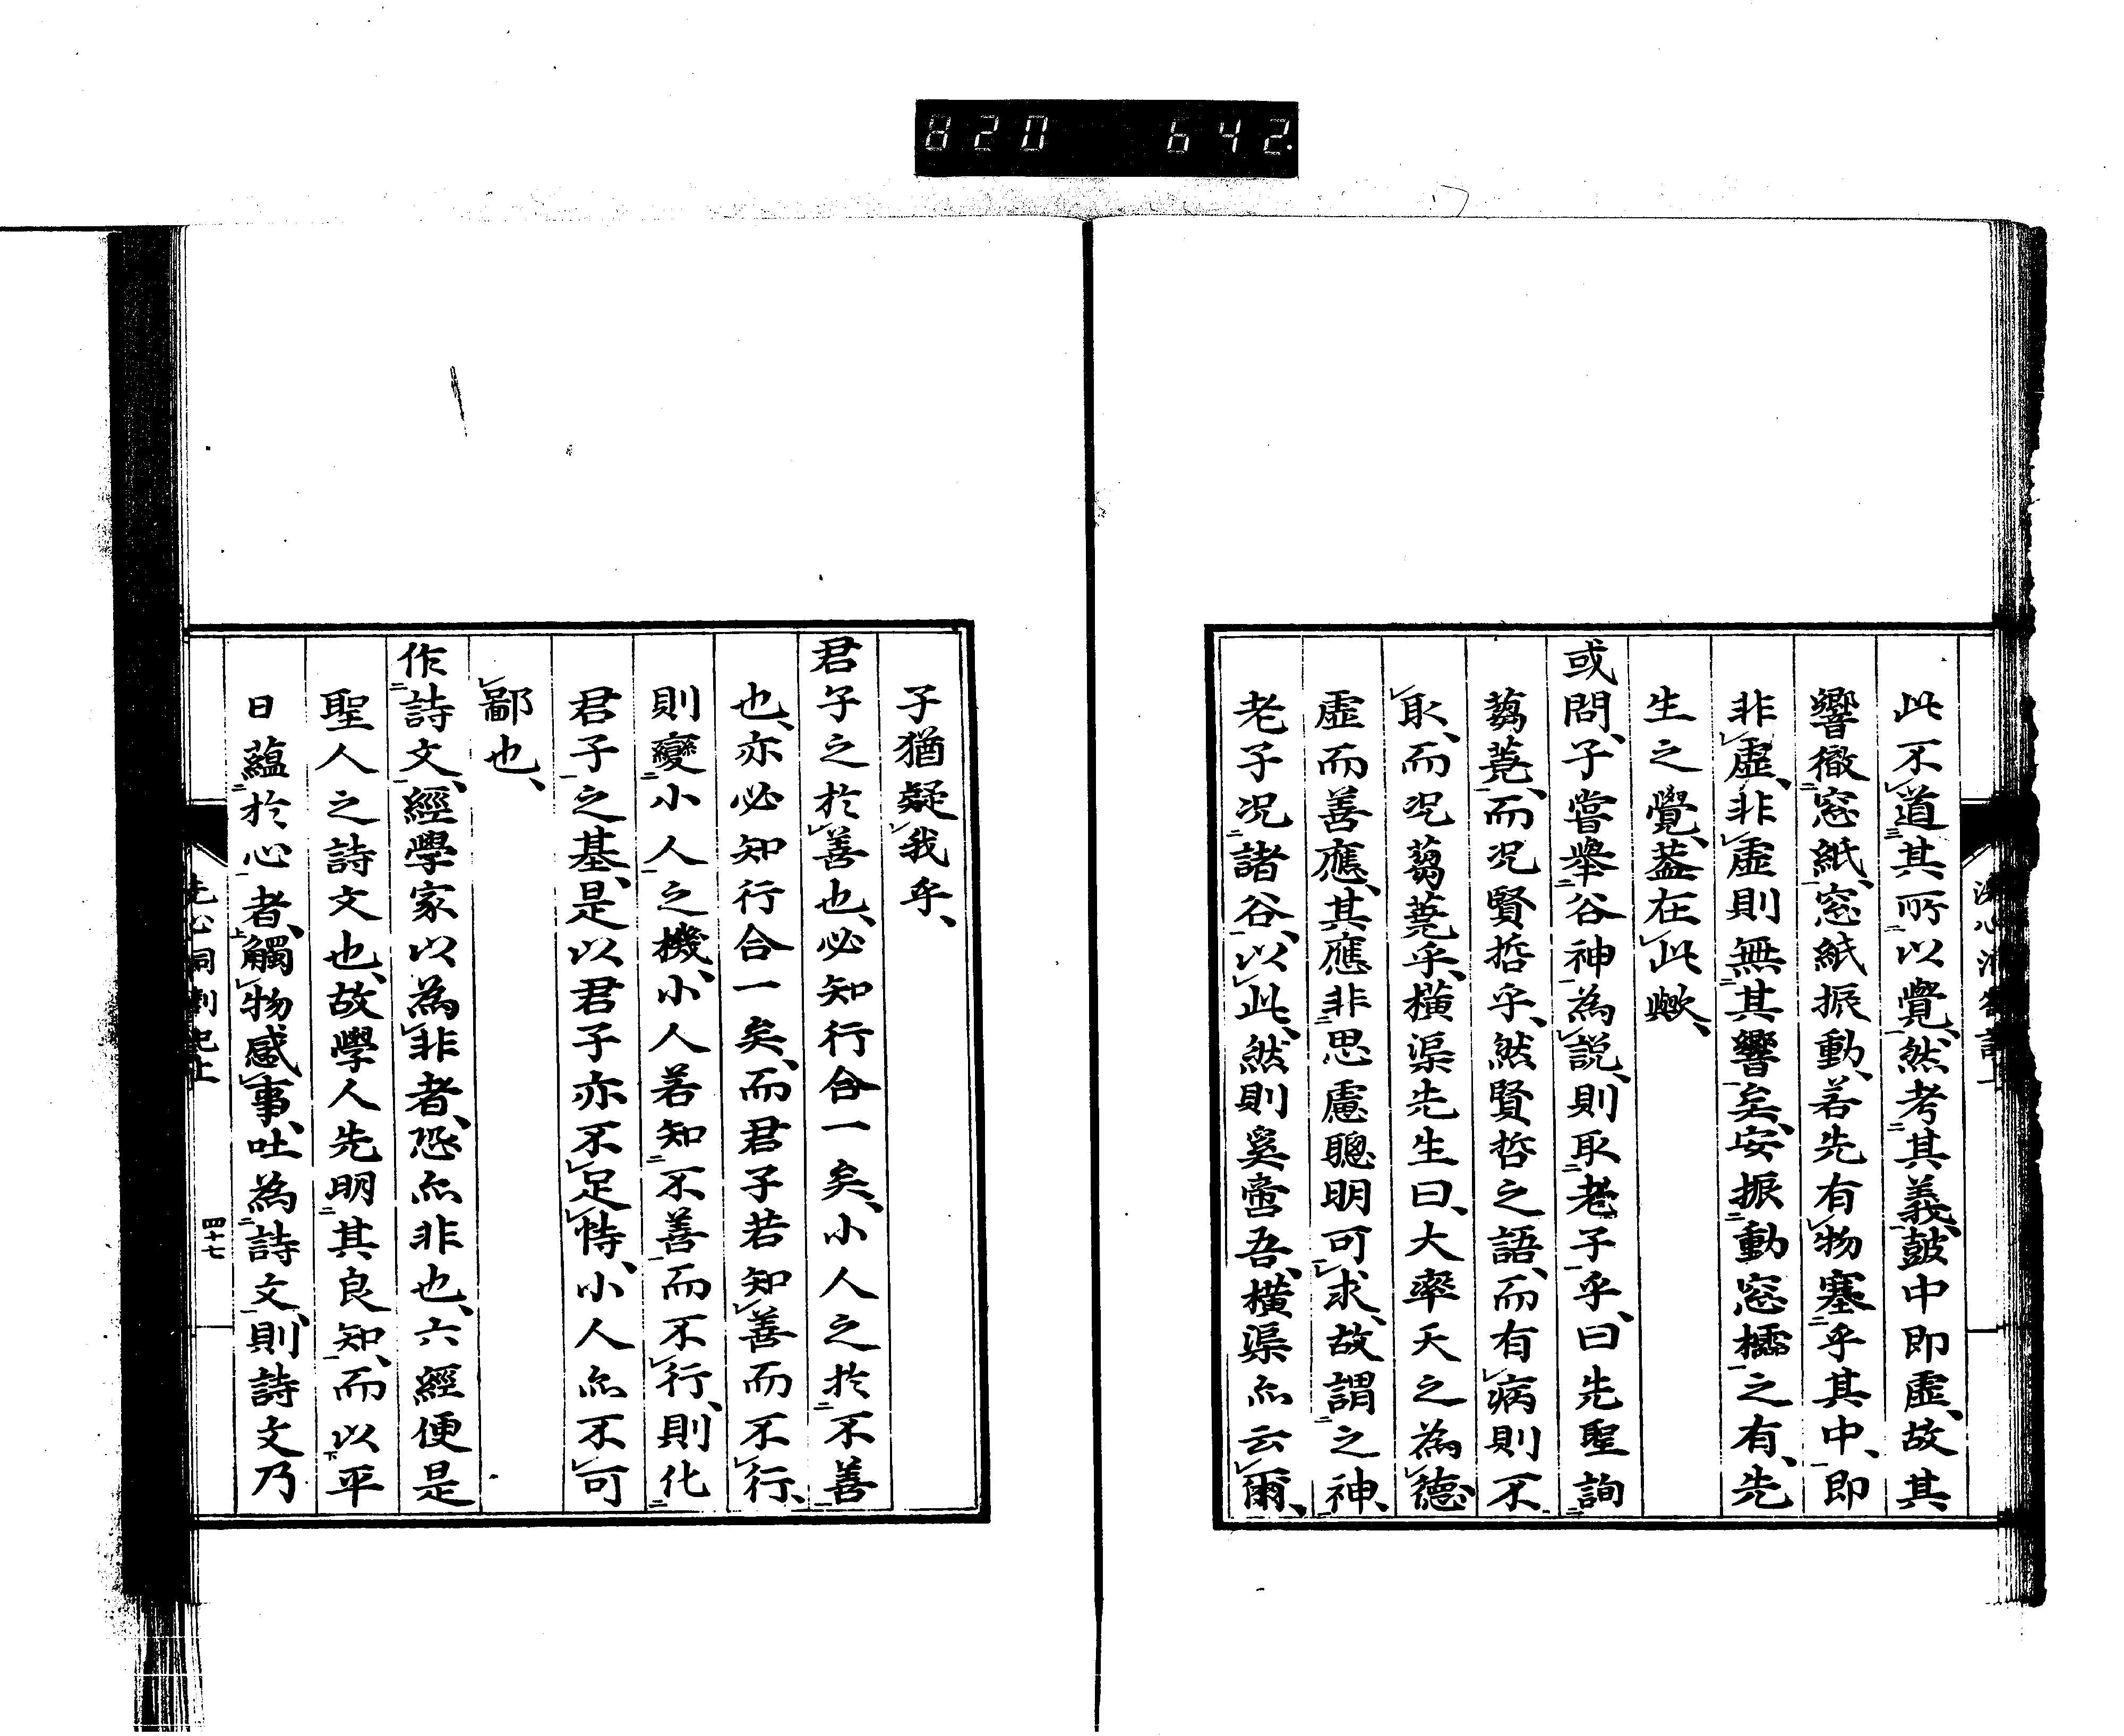 820 642.
此不道其所以覺、然考其義、鼓中即虛、故其
響徹窓紙、窓紙振動、若先有物塞乎其中、即
非虛、非虛則無其響矣、安振動窓櫺之有、先
生之覺、葢在此歟、
或問、子嘗擧谷神為説、則取老子乎、曰先聖詢
蒭蕘、而况賢哲乎、然賢哲之語、而有病則不
取、而况蒭蕘乎、橫渠先生曰、大率天之為德
虛而善應、其應非思慮聰明可求、故謂之神、
老子况諸谷、以此、然則奚啻吾、橫渠亦云爾、
子猶疑我乎、
君子之於善也、必知行合一矣、小人之於不善
也、亦必知行合一矣、而君子若知善而不行、
則變小人之機、小人若知不善而不行、則化
君子之基、是以君子亦不足恃、小人亦不可
鄙也、
作詩文、經學家以為非者、恐亦非也、六經便是
聖人之詩文也、故學人先明其良知、而以平
日蘊於心者、觸物感事、吐為詩文、則詩文乃
四十七